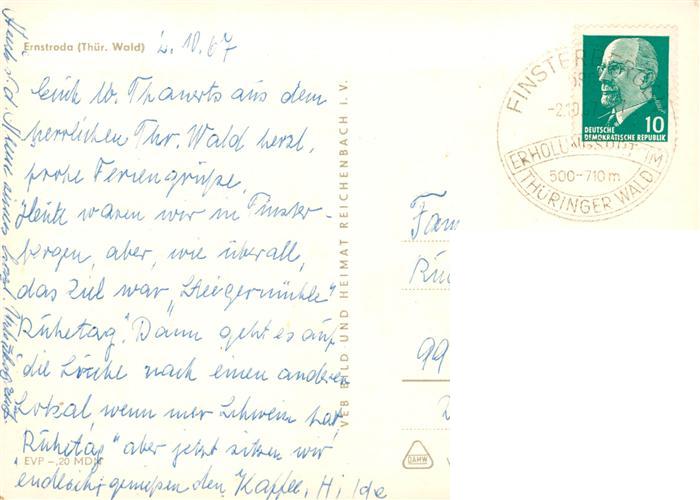 Ernstroda (Thür. Wald)
2.10.67
Euch w. Thanerts aus dem
herrlichen Thr. Wald herzl.
frohe Feriengrüße,
Heute waren wir in Finster-
bergen, aber, wie überall,
das Ziel war „Steigermühle"
Ruhetag". Dann geht es auf
die Suche nach einen anderen
Lokal, wenn mer Schwein hat
Ruhetag" aber jetzt sitzen wir
endlich, genießen den Kaffee, H, Ida
EVP –,20 MDN
VEB BILD UND HEIMAT REICHENBACH I. V.
FINSTERBERGEN
-2.10.67
ERHOLUNGSORT IM
500-710 m
THÜRINGER WALD
DEUTSCHE
DEMOKRATISCHE REPUBLIK
10
Fam
99
DAMW